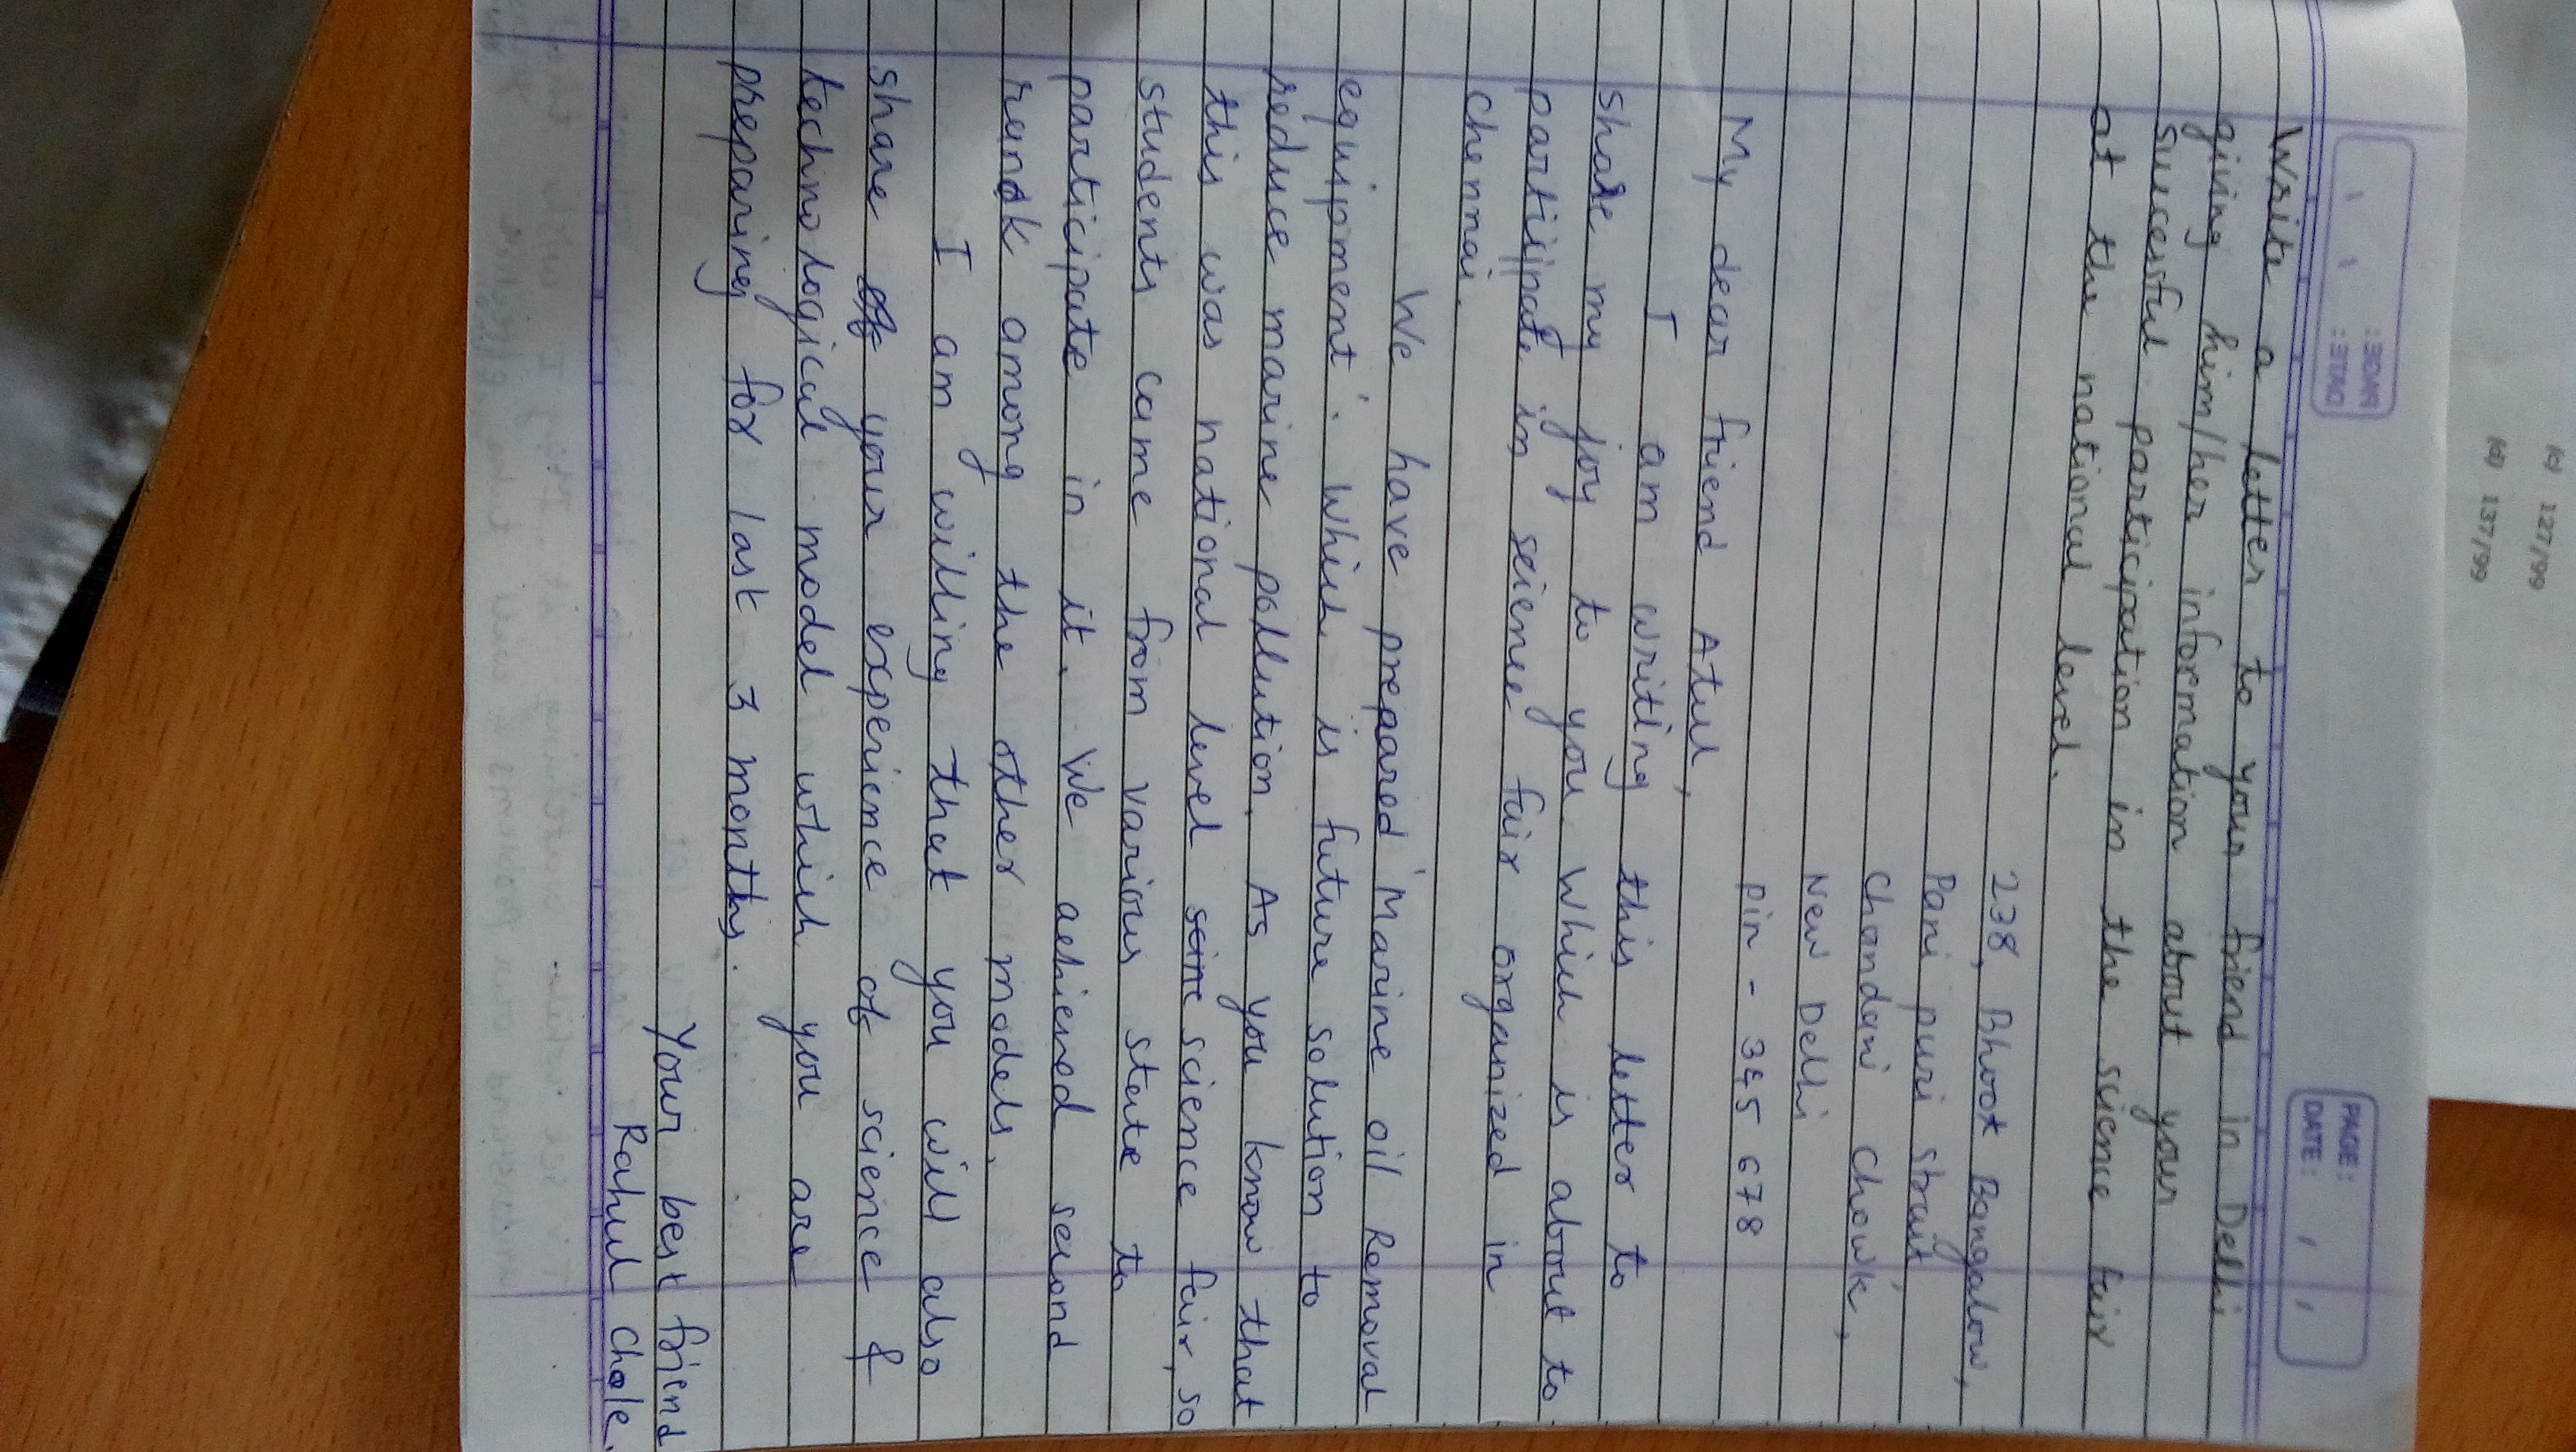 (c) 127/99
(d) 137/99
PAGE:
DATE: / /
PAGE:
DATE: / /
Write a letter to your friend in Delhi
giving him/her information about your
successful participation in the science fair
at the national level.
238, Bhoot Bangalow,
Pani puri strait,
Chandani Chowk,
New Delhi
Pin - 345 678
My dear friend Atul,
I am writing this letter to
share my joy to you. Which is about to
partiipate in science fair organized in
Chennai.
We have prepared 'Marine oil Removal
equipment'. Which is future solution to
reduce marine pollution. As you know that
this was national level science fair, so
students came from various state to
participate in it. We achieved second
rank among the other models.
I am willing that you will also
share your experience of science &
technological model which you are
preparing for last 3 months.
Your best friend
Rahul Chole.